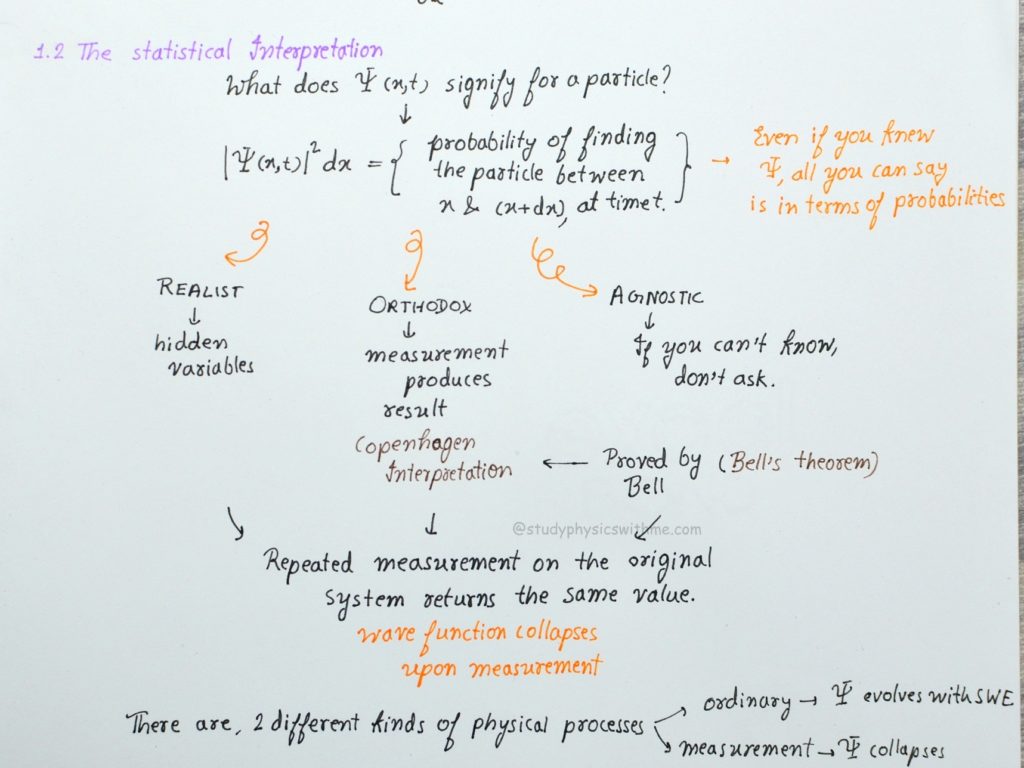 1.2 The statistical Interpretation
What does Ψ(x,t) signify for a particle?
↓
|Ψ(x,t)|² dx = { probability of finding
the particle between
x & (x+dx), at time t. }
→ Even if you knew
Ψ, all you can say
is in terms of probabilities
REALIST
↓
hidden
variables
ORTHODOX
↓
measurement
produces
result
Copenhagen
Interpretation
← Proved by (Bell's theorem)
Bell
AGNOSTIC
↓
If you can't know,
don't ask.
@studyphysicswithme.com
Repeated measurement on the original
system returns the same value.
wave function collapses
upon measurement
There are, 2 different kinds of physical processes
ordinary → Ψ evolves with SWE
measurement → Ψ collapses